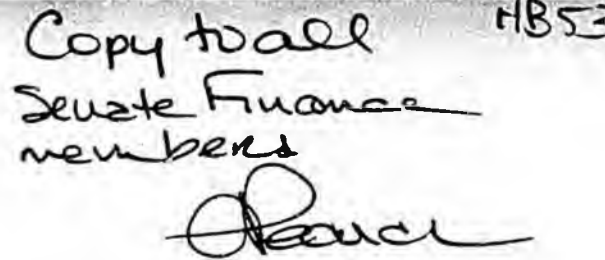 Copy to all HB53
Senate Finance
members